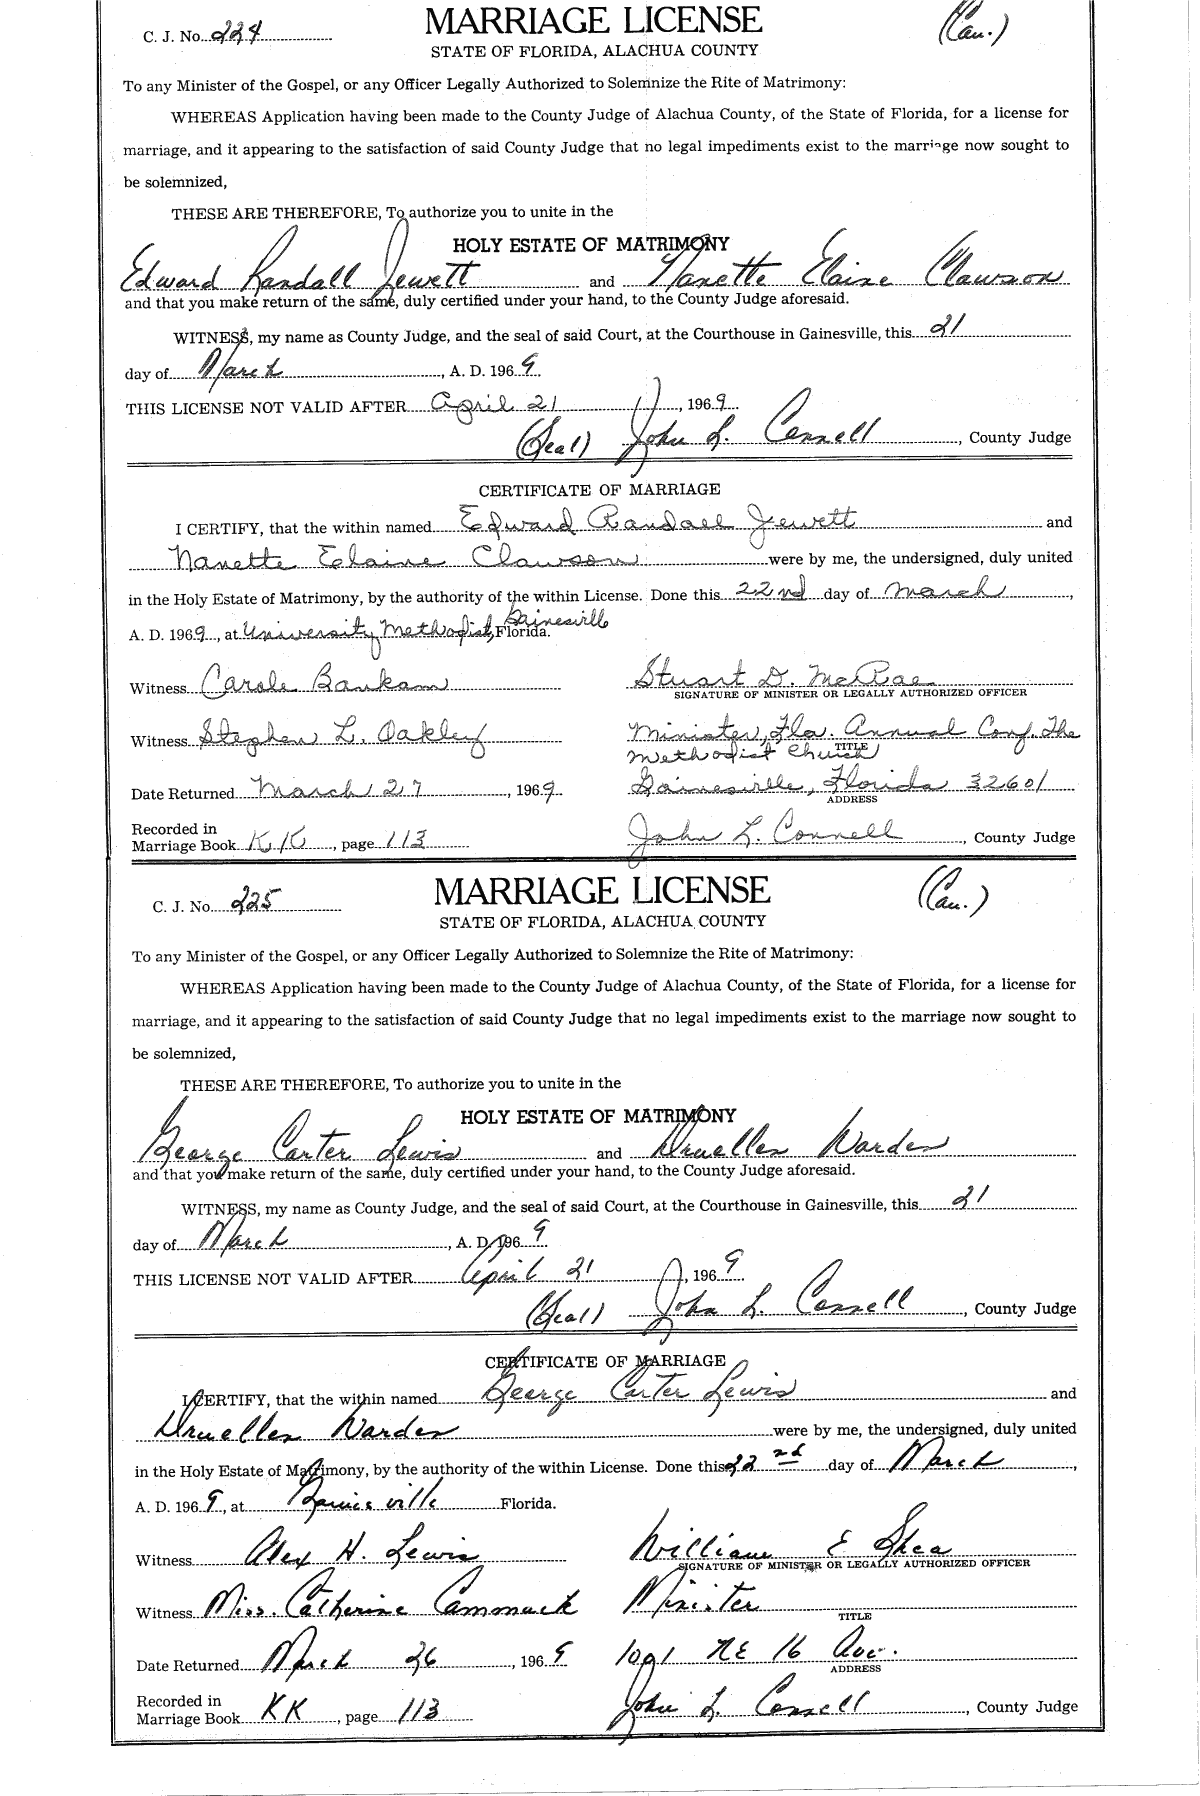 C. J. No. 224 MARRIAGE LICENSE (Cau.)
STATE OF FLORIDA, ALACHUA COUNTY
To any Minister of the Gospel, or any Officer Legally Authorized to Solemnize the Rite of Matrimony:
WHEREAS Application having been made to the County Judge of Alachua County, of the State of Florida, for a license for
marriage, and it appearing to the satisfaction of said County Judge that no legal impediments exist to the marriage now sought to
be solemnized,
THESE ARE THEREFORE, To authorize you to unite in the
HOLY ESTATE OF MATRIMONY
Edward Randall Jewett and Nanette Elaine Clawson
and that you make return of the same, duly certified under your hand, to the County Judge aforesaid.
WITNESS, my name as County Judge, and the seal of said Court, at the Courthouse in Gainesville, this 21
day of March, A. D. 1969.
THIS LICENSE NOT VALID AFTER April 21, 1969.
(Seal) John L. Connell, County Judge
CERTIFICATE OF MARRIAGE
I CERTIFY, that the within named Edward Randall Jewett and
Nanette Elaine Clawson were by me, the undersigned, duly united
in the Holy Estate of Matrimony, by the authority of the within License. Done this 22nd day of March,
A. D. 1969, at University Methodist, Gainesville Florida.
Witness Carole Stuart D. McRae
SIGNATURE OF MINISTER OR LEGALLY AUTHORIZED OFFICER
Witness Stephen L. Oakley Minister, Fla. Annual Conf. The
Methodist Church
TITLE
Date Returned March 27, 1969. Gainesville, Florida 32601
ADDRESS
Recorded in
Marriage Book KK, page 113 John L. Connell, County Judge
C. J. No. 225 MARRIAGE LICENSE (Cau.)
STATE OF FLORIDA, ALACHUA COUNTY
To any Minister of the Gospel, or any Officer Legally Authorized to Solemnize the Rite of Matrimony:
WHEREAS Application having been made to the County Judge of Alachua County, of the State of Florida, for a license for
marriage, and it appearing to the satisfaction of said County Judge that no legal impediments exist to the marriage now sought to
be solemnized,
THESE ARE THEREFORE, To authorize you to unite in the
HOLY ESTATE OF MATRIMONY
George Carter Lewis and Druellen Warden
and that you make return of the same, duly certified under your hand, to the County Judge aforesaid.
WITNESS, my name as County Judge, and the seal of said Court, at the Courthouse in Gainesville, this 21
day of March, A. D. 1969
THIS LICENSE NOT VALID AFTER April 21, 1969.
(Seal) John L. Connell, County Judge
CERTIFICATE OF MARRIAGE
I CERTIFY, that the within named George Carter Lewis and
Druellen Warden were by me, the undersigned, duly united
in the Holy Estate of Matrimony, by the authority of the within License. Done this 22nd day of March,
A. D. 1969, at Gainesville Florida.
Witness Alex H. Lewis William E Shea
SIGNATURE OF MINISTER OR LEGALLY AUTHORIZED OFFICER
Witness Miss. Catherine Cammack Minister
TITLE
Date Returned March 26, 1969 1091 NE 16 Ave.
ADDRESS
Recorded in
Marriage Book KK, page 113 John L. Connell, County Judge